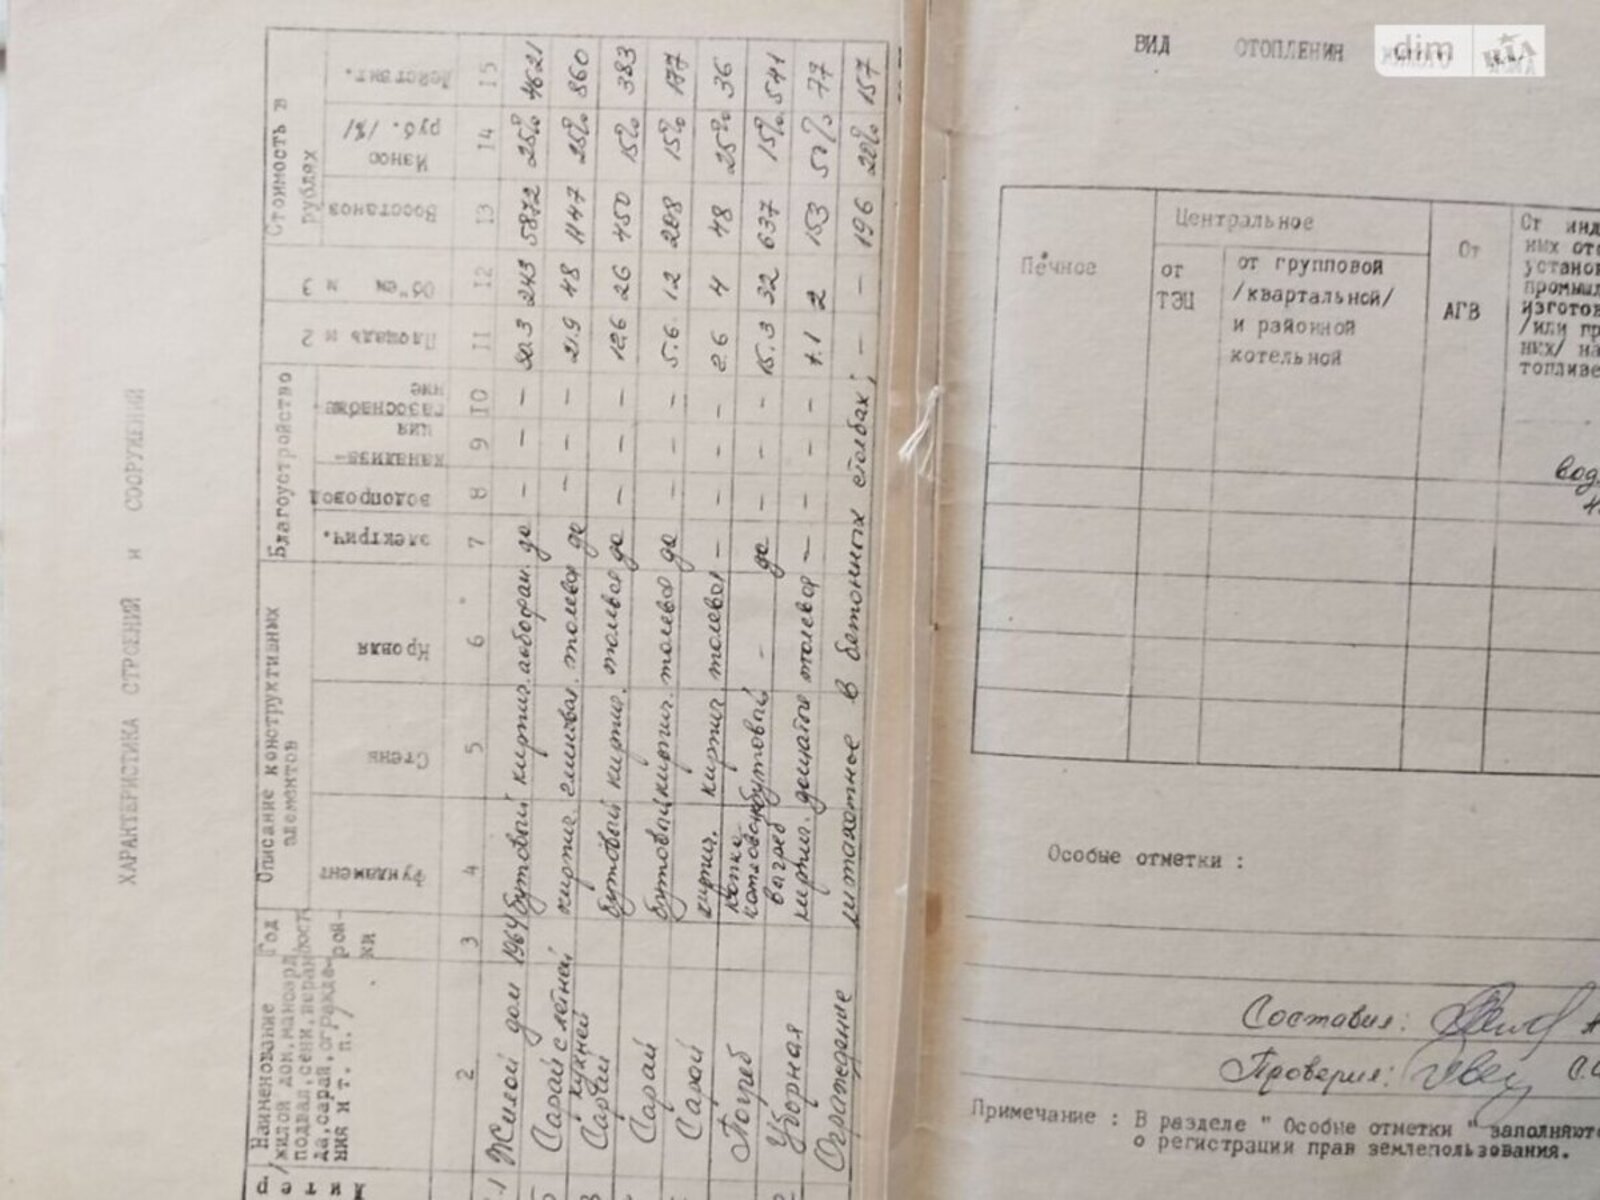 ХАРАКТЕРИСТИКА СТРОЕНИЙ и СООРУЖЕНИЙ
Наименование
/жилой дом, мансард
подвал, сени, веран
да, сарай, огражде-
ния и т. п./
Год
пост
рой-
ки
Описание конструктивных
элементов
Фундамент
Стены
Кровля
Благоустройство
электрич.
водопровод
канализа-
ция
газоснабже-
ние
Площадь м 2
Об"ем м 3
Стоимость в
рублях
Восстанов
Износ
руб. /%/
Действит.
2 3 4 5 6 7 8 9 10 11 12 13 14 15
Жилой дом 1964 бутовый кирпич. асбофан. да - - - 90.3 243 5872 25% 4621
Сарай с летней
кухней
кирпич. глиновал. толевая да - - - 21.9 48 1147 25% 860
Сарай бутовый кирпич. толевая да - - - 12.6 26 450 15% 383
Сарай бутовый кирпич. толевая да - - - 5.6 12 208 15% 177
Сарай кирпич. кирпич толевая - - - - 2.6 4 48 25% 36
Погреб
копка
котлован
бутовый - да - - - 15.3 32 637 15% 541
Уборная
выгреб
кирпич. дощатые толевая - - - - 1.1 2 153 50% 77
Ограждение штахетное в бетонных столбах; - - 196 20% 157
ВИД ОТОПЛЕНИЯ
dim
Печное
Центральное
от
ТЭЦ
от групповой
/квартальной/
и районной
котельной
От
АГВ
От инд
ных ото
установ
промыш
изготов
/или пр
них/ на
топливе
вод
Особые отметки :
Составил:
Проверил:
Примечание : В разделе " Особые отметки " заполняют
о регистрации прав землепользования.